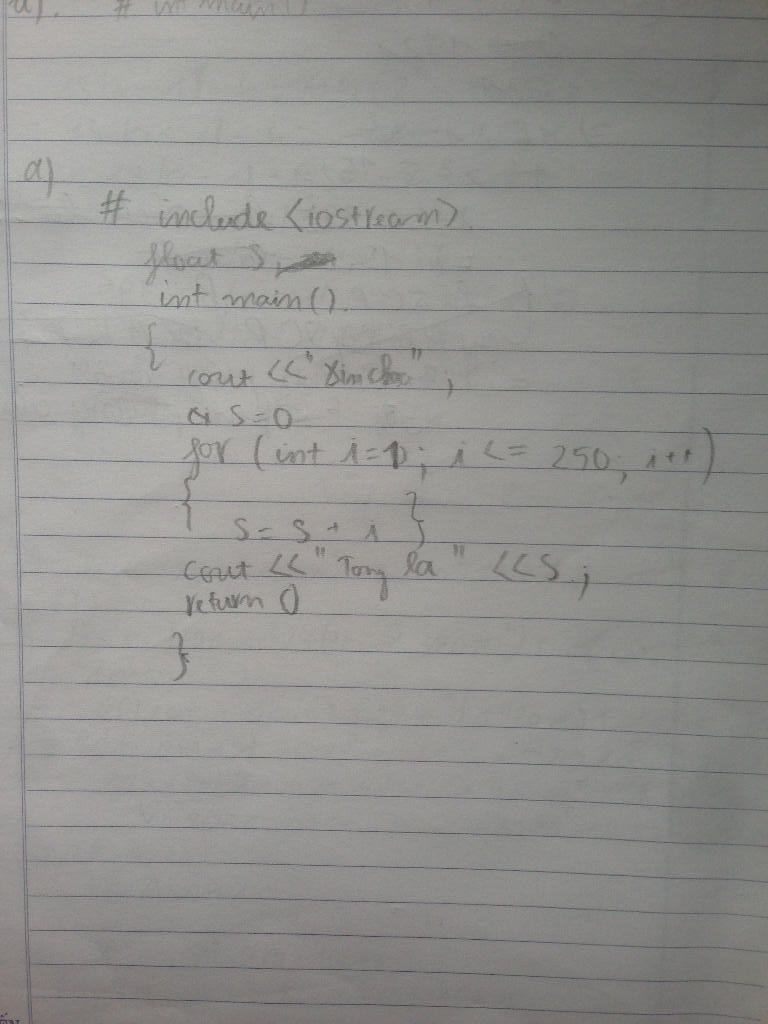 # int main()
a)
# include <iostream>
float S,
int main()
{
cout << "Xin chao",
S=0
for (int i=1; i <= 250; i++)
{
S = S + i }
cout << "Tong la" << S ;
return 0
}